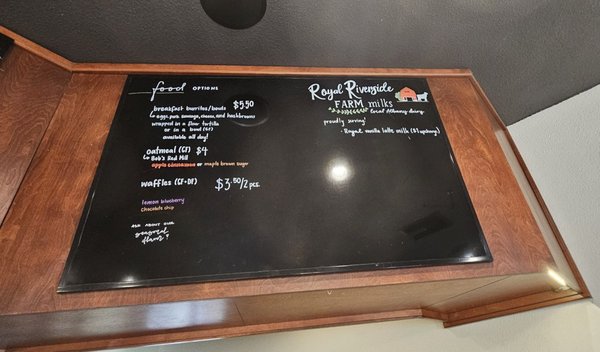 food OPTIONS
breakfast burritos/bowls $5.50
eggs, pork sausage, cheese, and hashbrowns
wrapped in a flour tortilla
or in a bowl (GF)
available all day!
oatmeal (GF) $4
Bob's Red Mill
apple cinnamon or maple brown sugar
waffles (GF+DF) $3.50/2 pcs.
lemon blueberry
chocolate chip
ASK ABOUT OUR
seasonal
flavor!
Royal Riverside
FARM milks
local Albany dairy
proudly serving:
• Royal vanilla latte milk ($1 upcharge)